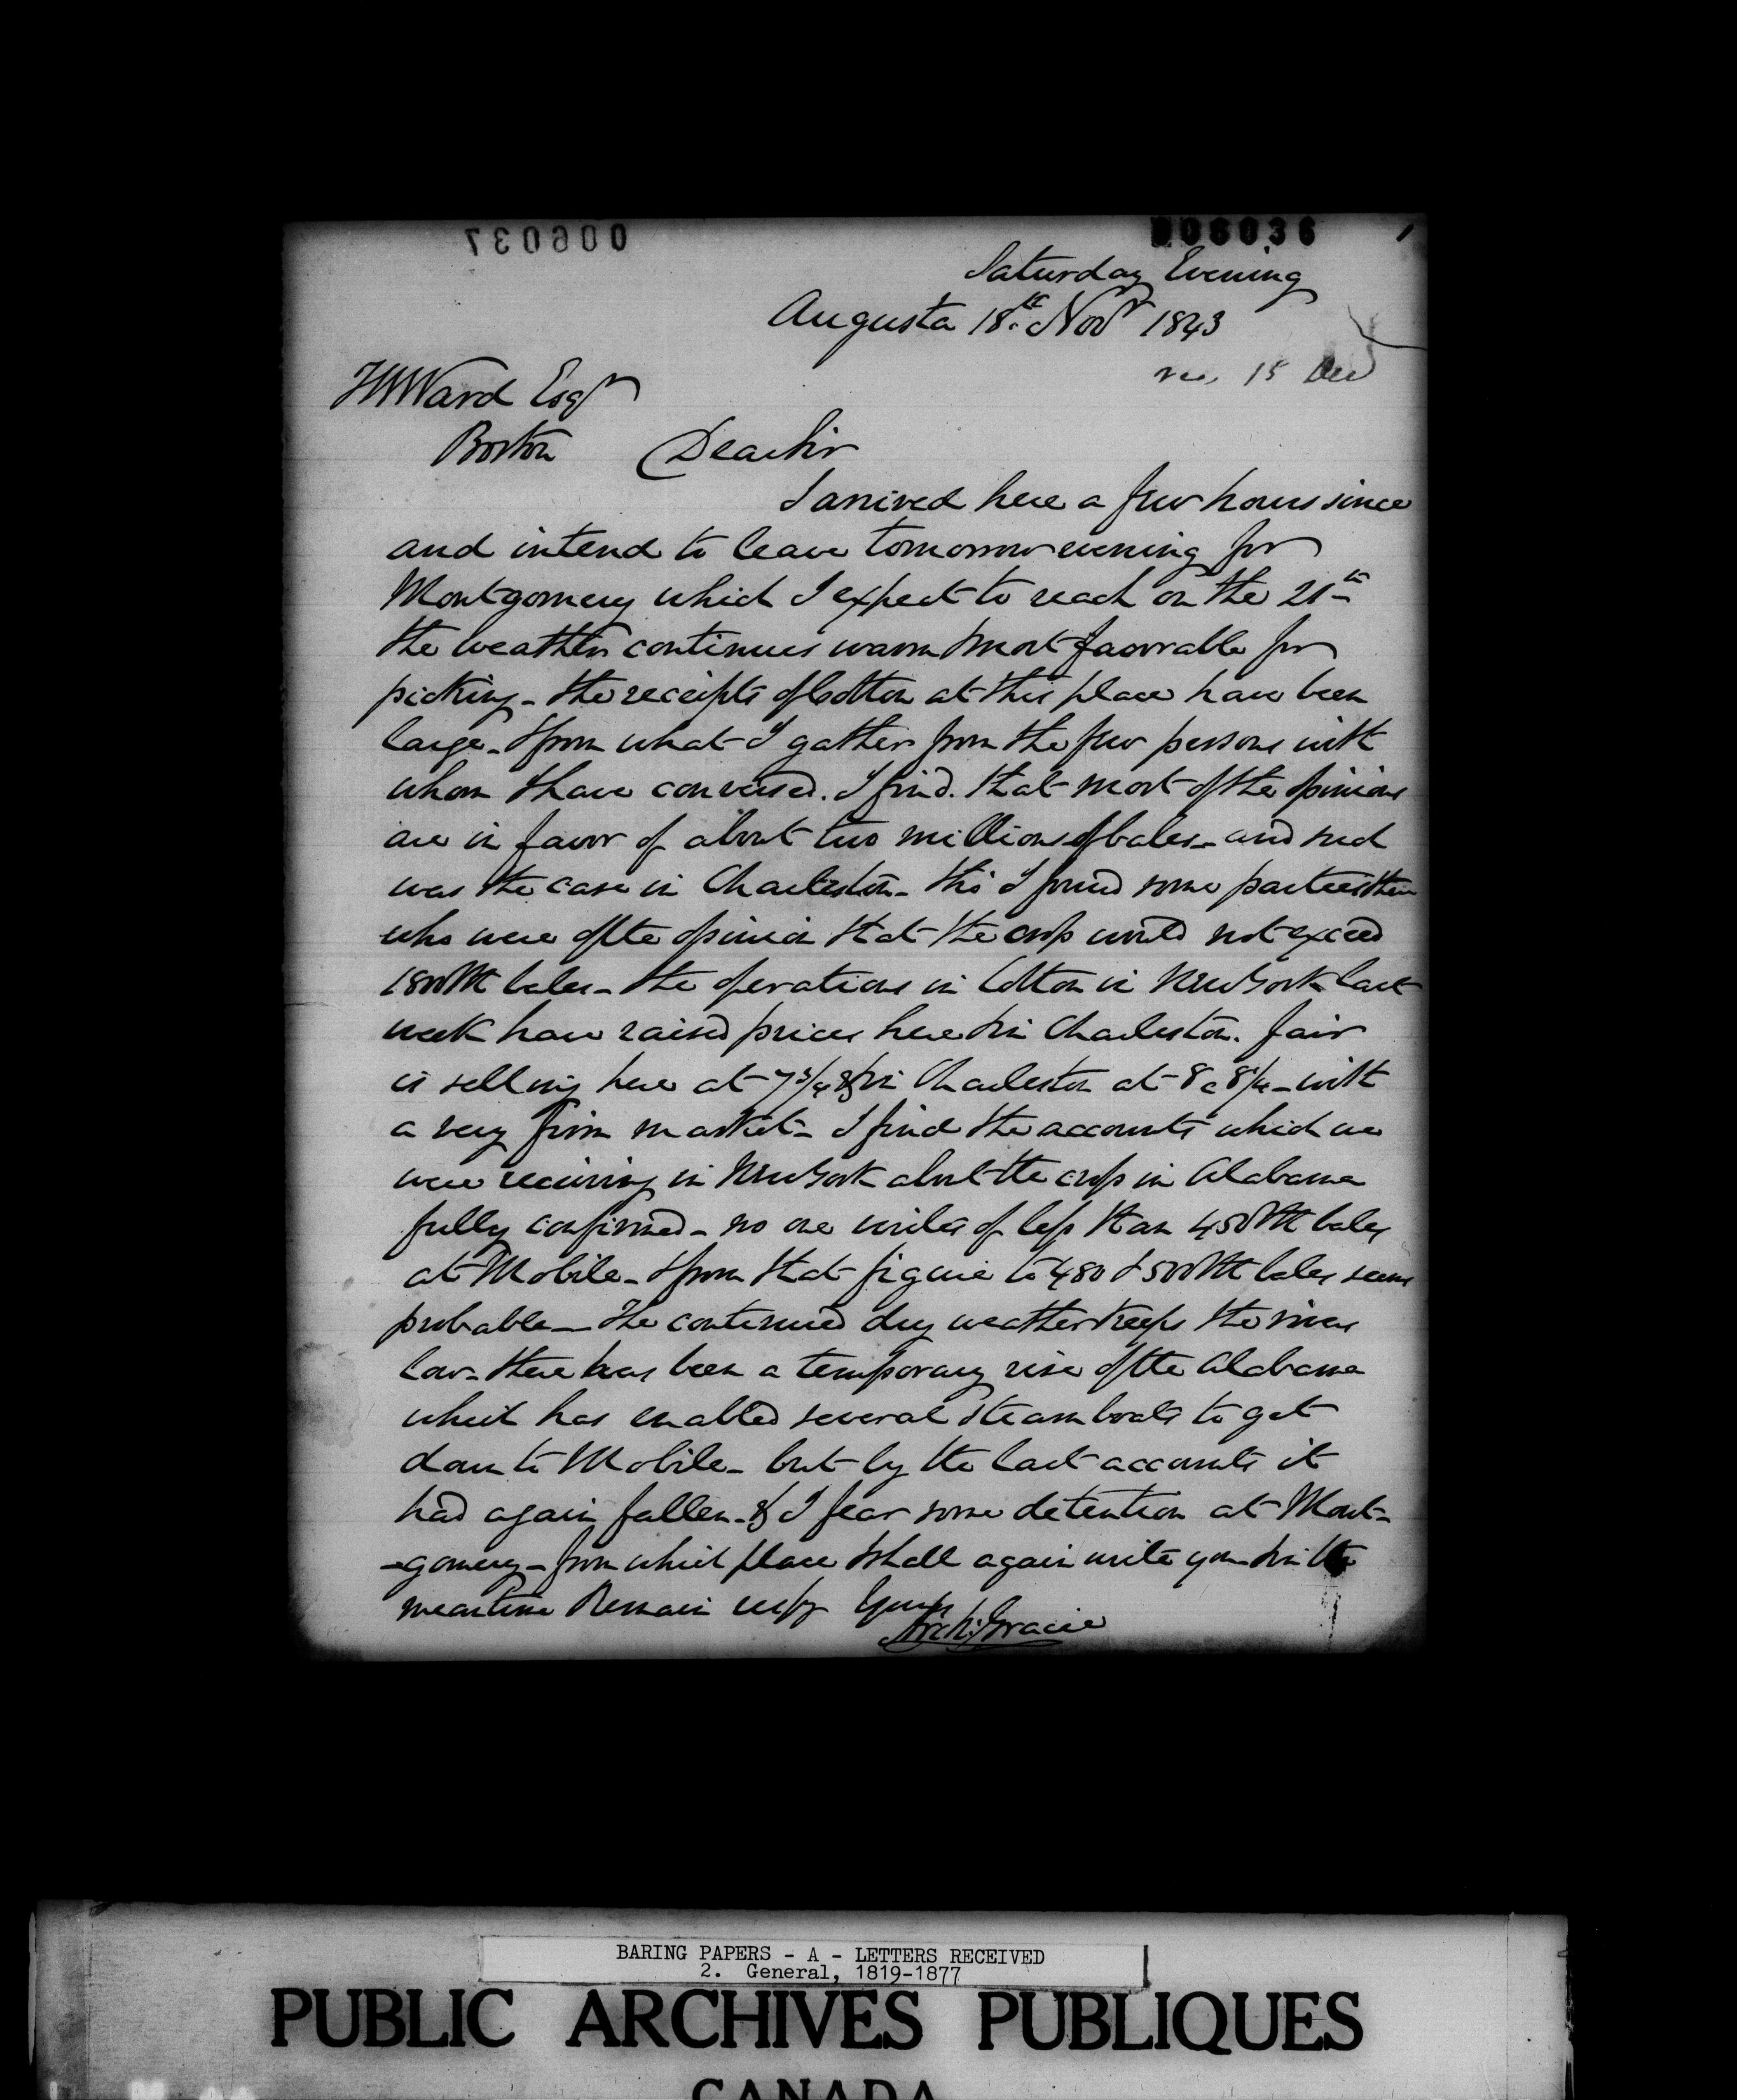 006037
006036
Saturday Evening
Augusta 18th Novr 1843
rec. 15 Dec
T W Ward Esqr
Boston Dear Sir
I arrived here a few hours since
and intend to leave tomorrow evening for
Montgomery which I expect to reach on the 21st
the weather continues warm & most favorable for
picking - the receipts of Cotton at this place have been
large - & from what I gather from the few persons with
whom I have conversed. I find. that most of the opinions
are in favor of about two millions of bales - and such
was the case in Charleston - tho' I found some parties there
who were of the opinion that the crop would not exceed
1800M bales - the operations in Cotton in New York last
week have raised prices here & in Charleston. fair
is selling here at 7 3/4 & in Charleston at 8 a 8 1/4 - with
a very firm market - I find the accounts which we
were receiving in New York about the crop in Alabama
fully confirmed - no one writes of less than 450M bales
at Mobile - & from that figure to 480 & 500M bales seems
probable - The continued dry weather keeps the rivers
low - there has been a temporary rise of the Alabama
which has enabled several steam boats to get
down to Mobile - but by the last accounts it
had again fallen - & I fear some detention at Mont-
-gomery - from which place I shall again write you & in the
meantime Remain Yours
Archd Gracie
BARING PAPERS - A - LETTERS RECEIVED
2. General, 1819-1877
PUBLIC ARCHIVES PUBLIQUES
CANADA